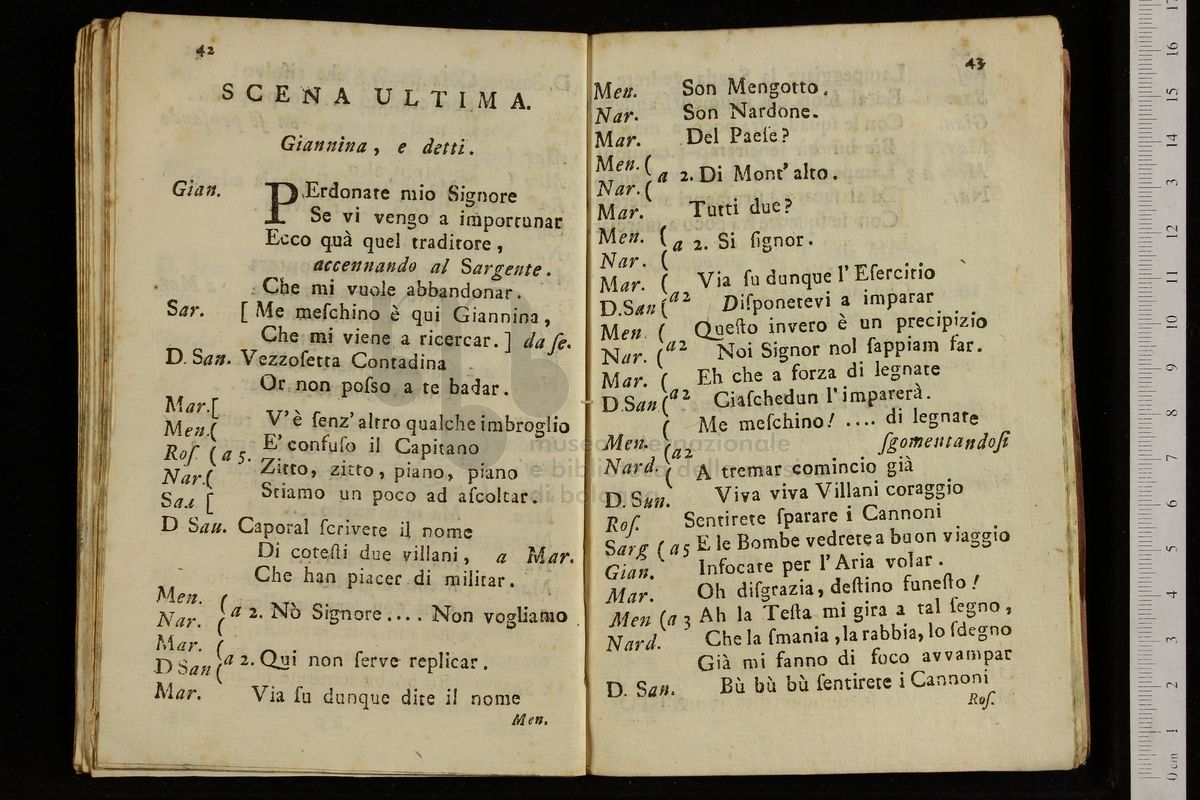 42
SCENA ULTIMA.
Giannina, e detti.
Gian. PErdonate mio Signore
Se vi vengo a importunar
Ecco quà quel traditore,
accennando al Sargente.
Che mi vuole abbandonar.
Sar. [ Me meſchino è qui Giannina,
Che mi viene a ricercar. ] da ſe.
D. San. Vezzoſetta Contadina
Or non poſso a te badar.
Mar.[
Men.( V'è ſenz'altro qualche imbroglio
Roſ. ( a 5. E' confuſo il Capitano
Nar.( Zitto, zitto, piano, piano
San [ Stiamo un poco ad aſcoltar.
D San. Caporal ſcrivete il nome
Di coteſti due villani, a Mar.
Che han piacer di militar.
Men. (
Nar. ( a 2. Nò Signore.... Non vogliamo
Mar. (
D San ( a 2. Qui non ſerve replicar.
Mar. Via ſu dunque dite il nome
Men.
43
Men. Son Mengotto.
Nar. Son Nardone.
Mar. Del Paeſe?
Men. (
Nar. ( a 2. Di Mont'alto.
Mar. Tutti due?
Men. ( a 2. Si ſignor.
Nar. (
Mar. ( Via ſu dunque l'Eſercitio
D.San ( a 2 Diſponetevi a imparar
Men. ( Queſto invero è un precipizio
Nar. ( a 2 Noi Signor nol ſappiam far.
Mar. ( Eh che a forza di legnate
D.San ( a 2 Ciaſchedun l'imparerà.
Men. ( Me meſchino! .... di legnate
ſgomentandoſi
Nard. ( a 2 A tremar comincio già
D. San. Viva viva Villani coraggio
Roſ. Sentirete ſparare i Cannoni
Sarg ( a 5 E le Bombe vedrete a buon viaggio
Gian. Infocate per l'Aria volar.
Mar. Oh diſgrazia, deſtino funeſto!
Men ( a 3 Ah la Teſta mi gira a tal ſegno,
Nard. Che la ſmania, la rabbia, lo ſdegno
Già mi fanno di foco avvampar
D. San. Bù bù bù ſentirete i Cannoni
Roſ.
museo internazionale
e biblioteca della musica
di bologna